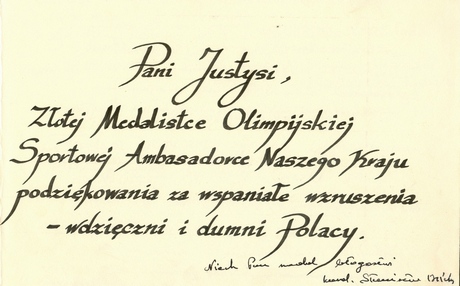 Pani Justysi,
Złotej Medalistce Olimpijskiej
Sportowej Ambasadorce Naszego Kraju
podziękowania za wspaniałe wzruszenia
– wdzięczni i dumni Polacy.
Niech Pan nadal błogosławi
kard. Stanisław